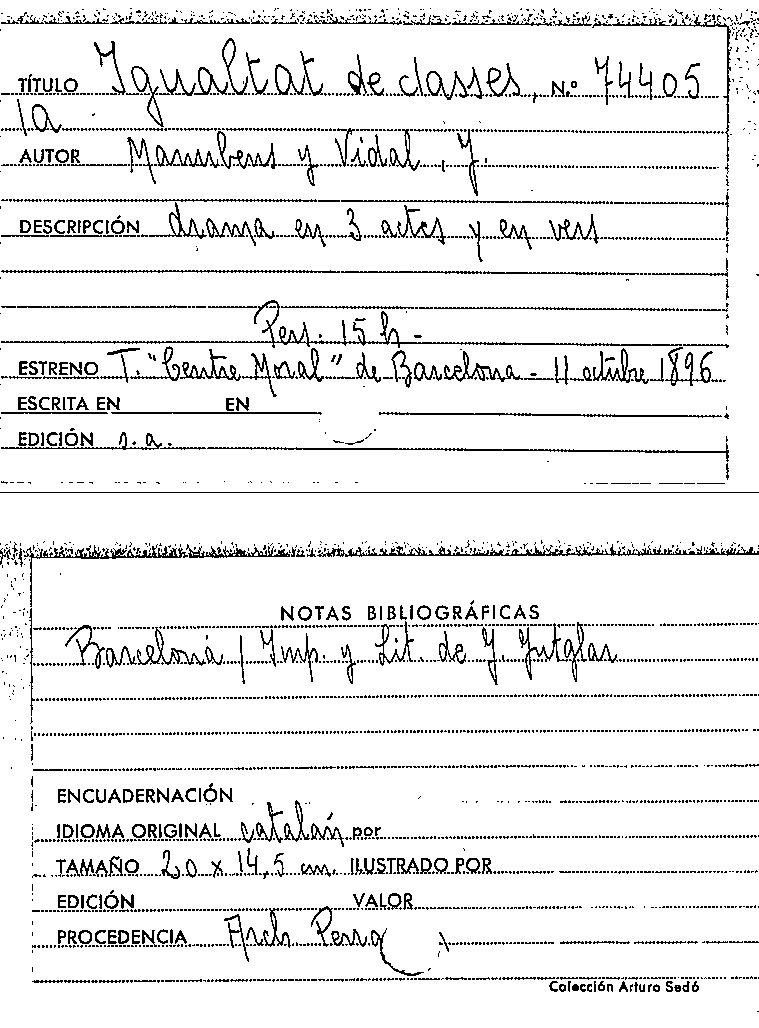 TÍTULO Igualtat de classes, N.º 74405
la
AUTOR Manubens y Vidal, J.
DESCRIPCIÓN drama en 3 actes y en vers
Pers. 15 h -
ESTRENO T. "Centre Moral" de Barcelona - 11 octubre 1896
ESCRITA EN EN
EDICIÓN s. a.
NOTAS BIBLIOGRÁFICAS
Barcelona / Imp. y Lit. de J. Jutglar
ENCUADERNACIÓN
IDIOMA ORIGINAL catalán por
TAMAÑO 20 x 14,5 cm. ILUSTRADO POR
EDICIÓN VALOR
PROCEDENCIA Arch
Colección Arturo Sedó